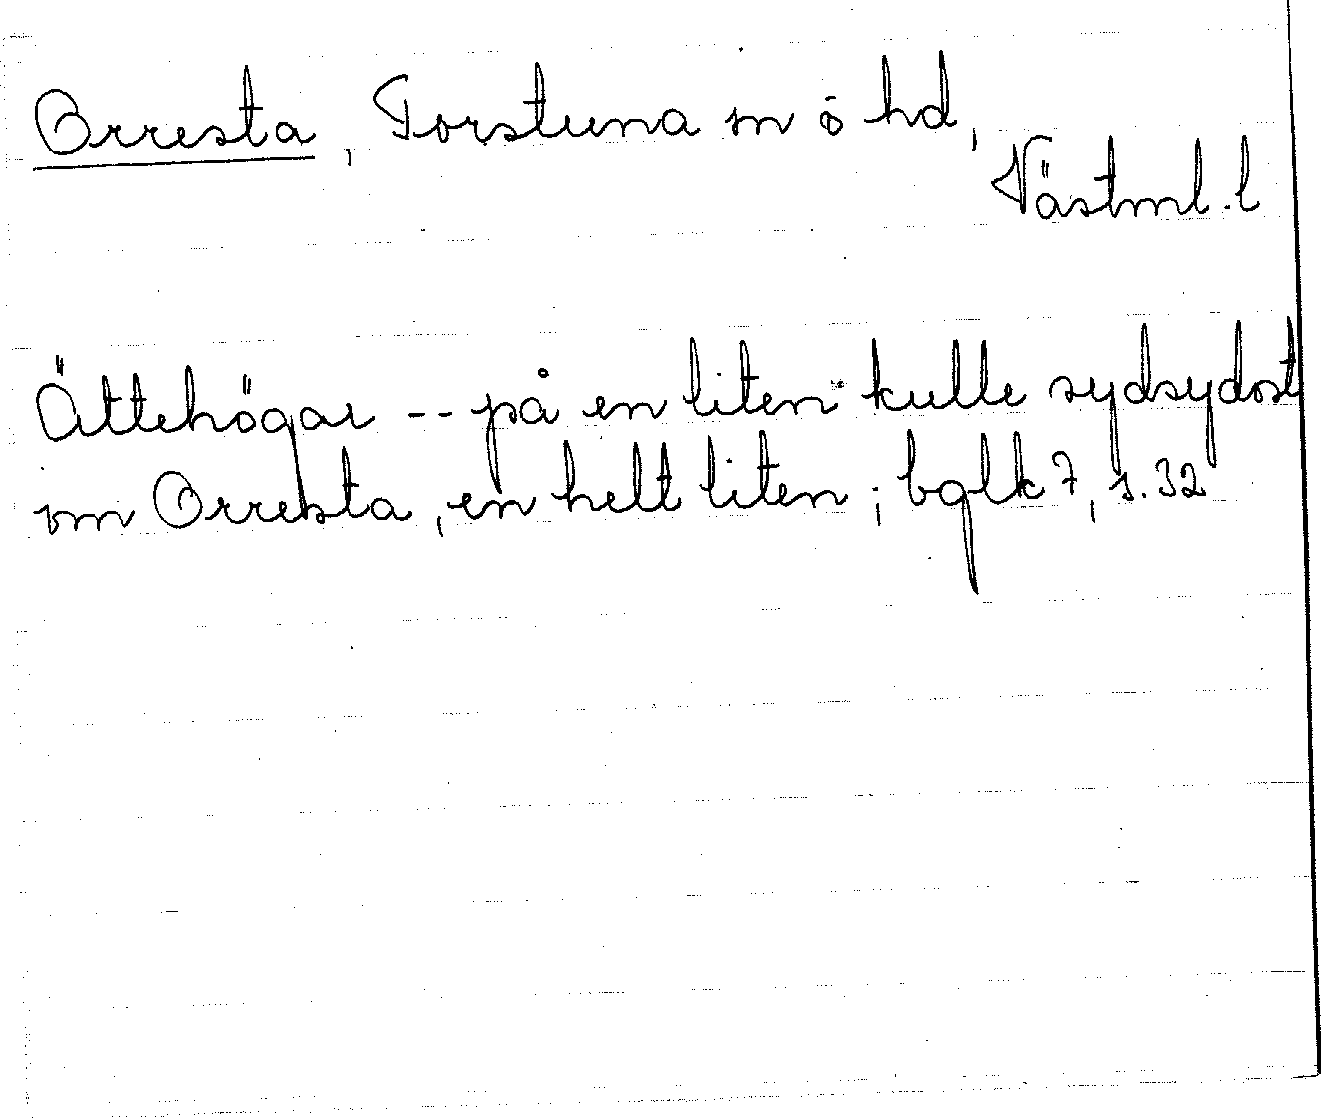 Orresta, Torstuna sn ö hd,
Västml. l
Ättehögar -- på en liten kulle sydsydost
om Orresta, en helt liten; bglk 7, s. 32